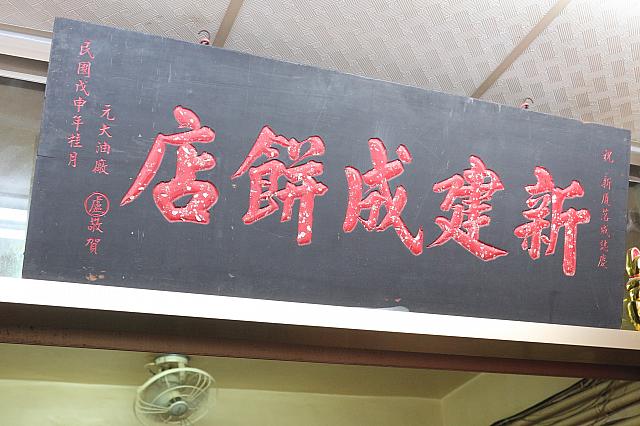 祝 新廈落成誌慶
新建成餅店
元大油廠
盧敬賀
民國戊申年桂月